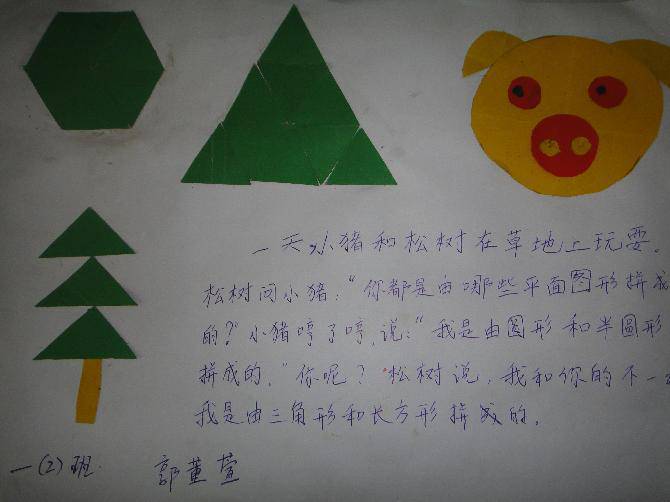 一天,小猪和松树在草地上玩耍。
松树问小猪:“你都是由哪些平面图形拼成
的?”小猪哼了哼,说:“我是由圆形和半圆形
拼成的,“你呢?松树说,我和你的不一
我是由三角形和长方形拼成的。
一(2)班 郭董萱